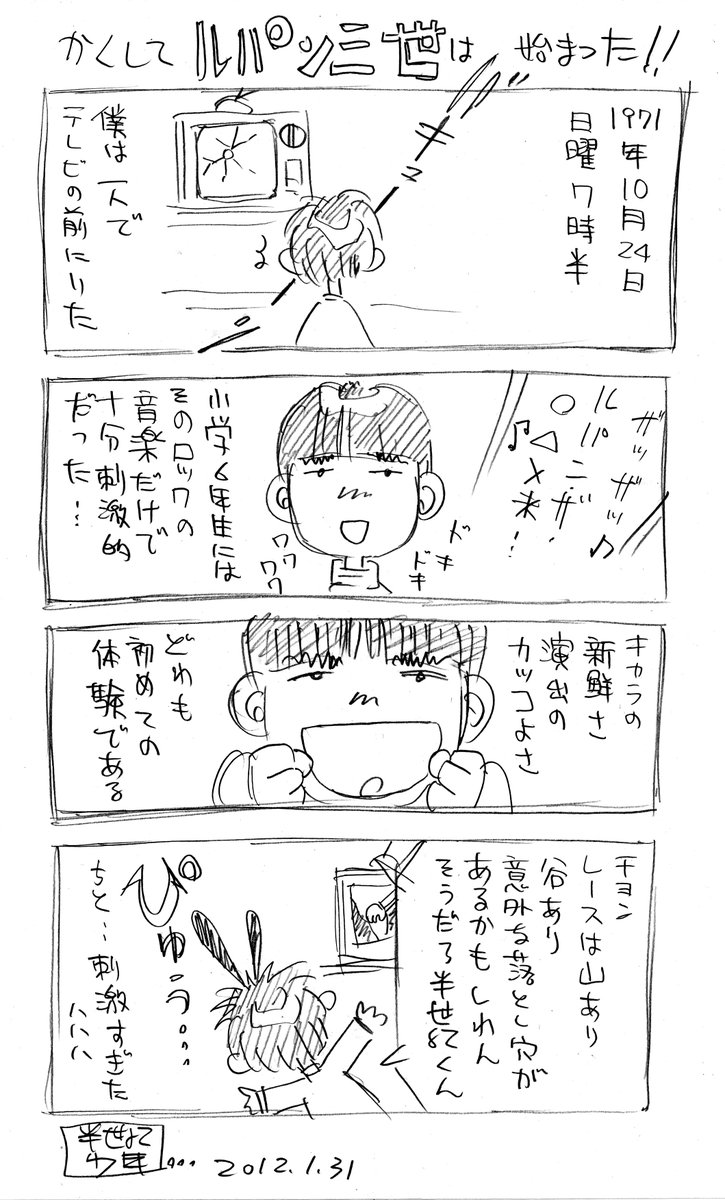 かくして ルパン三世は 始まった!!
1971年10月24日
日曜7時半
僕は一人で
テレビの前にいた
ザッザッ♪
ルパ ニ ザ・
○△×米!
♪
ドキ
ドキ
ワクワク
小学6年生には
そのロックの
音楽だけで
十分刺激的
だった…
キカラの
新鮮さ
演出の
カッコよさ
どれも
初めての
体験である
チョン
レースは山あり
谷あり
意外な落とし穴が
あるかもしれん
そうだろ半世紀くん
ぴゅう…
ちと…刺激すぎた
ハハハ
2012.1.31